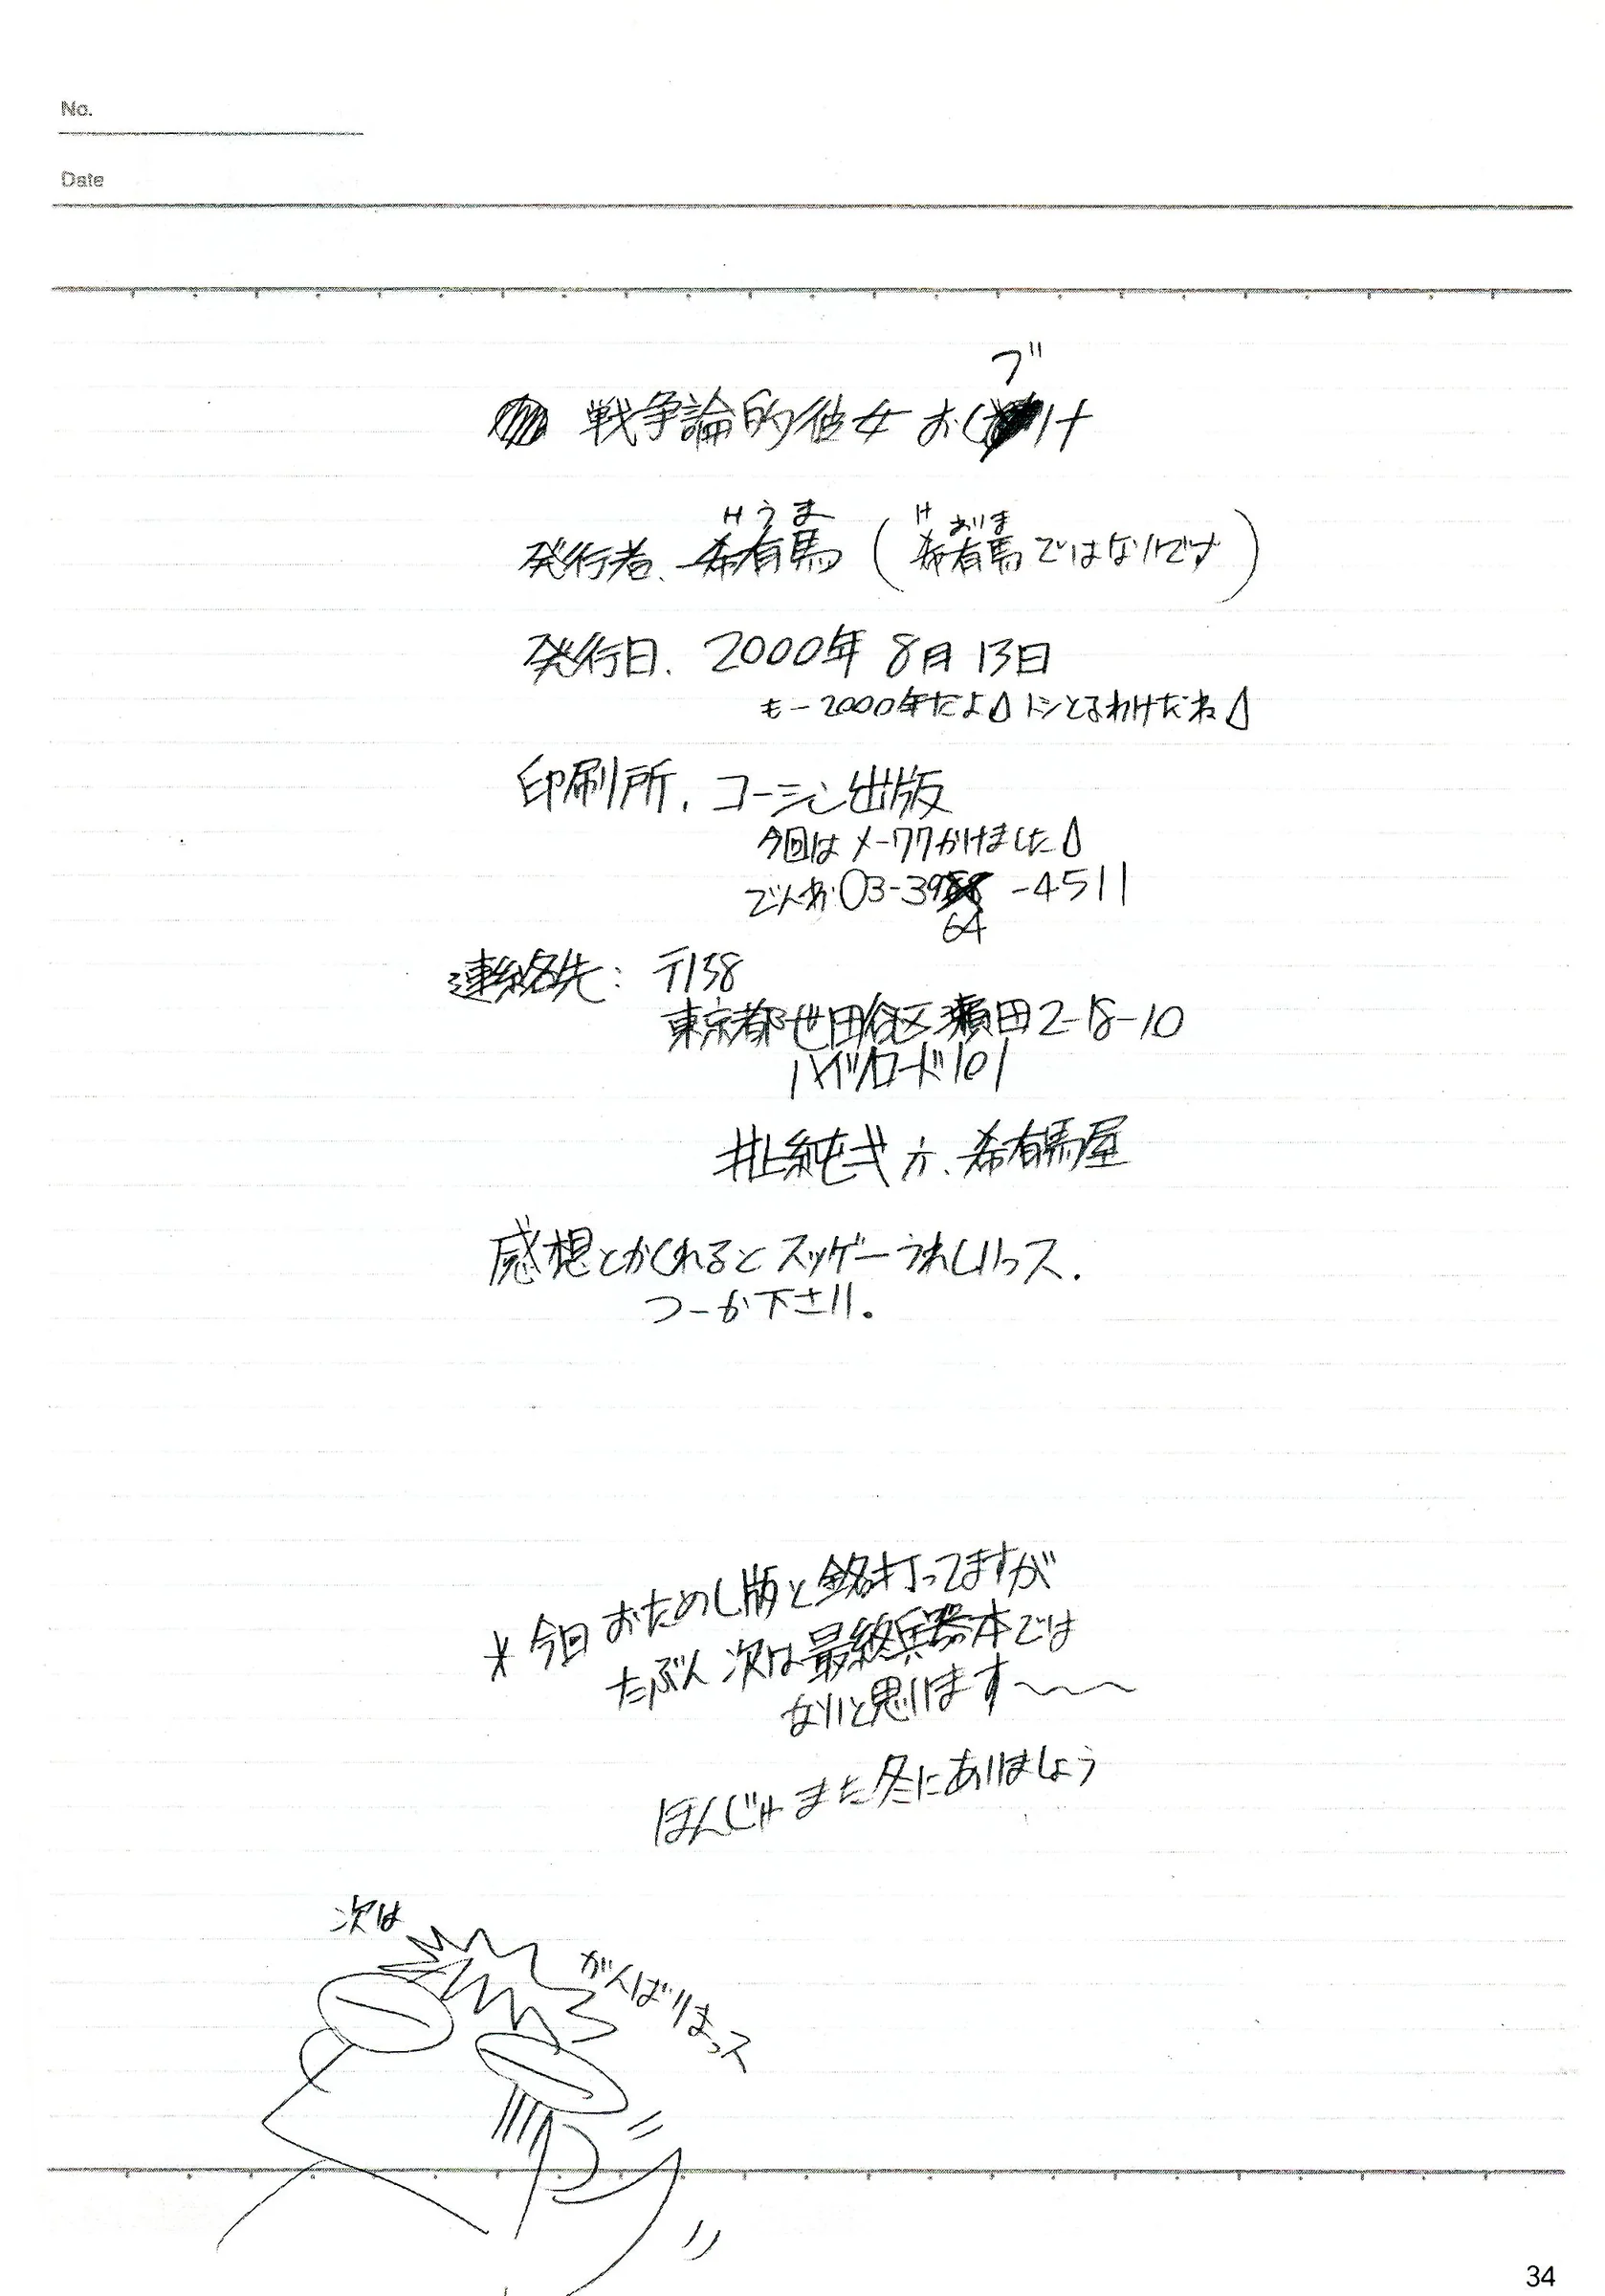 No.
Date
ブ
戦争論的彼女 おしけ
けうま
け ありま
発行者、希有馬(希有馬ではないです)
発行日、2000年 8月 13日
もー2000年だよ トシとるわけだね
印刷所、コーシン出版
今回はメーワクかけました
でんわ 03-39 -4511
64
連絡先: 〒158
東京都世田谷区瀬田2-18-10
ハイツロード101
井上純弌方、希有馬屋
感想とかくれるとスッゲーうれしいっス.
つーか下さい。
*今回おためし版と銘打ってますが
たぶん 次は最終兵器本では
ないと思います〜〜〜
ほんじゃまた冬にあいましょう
次は
がんばりまっス
34